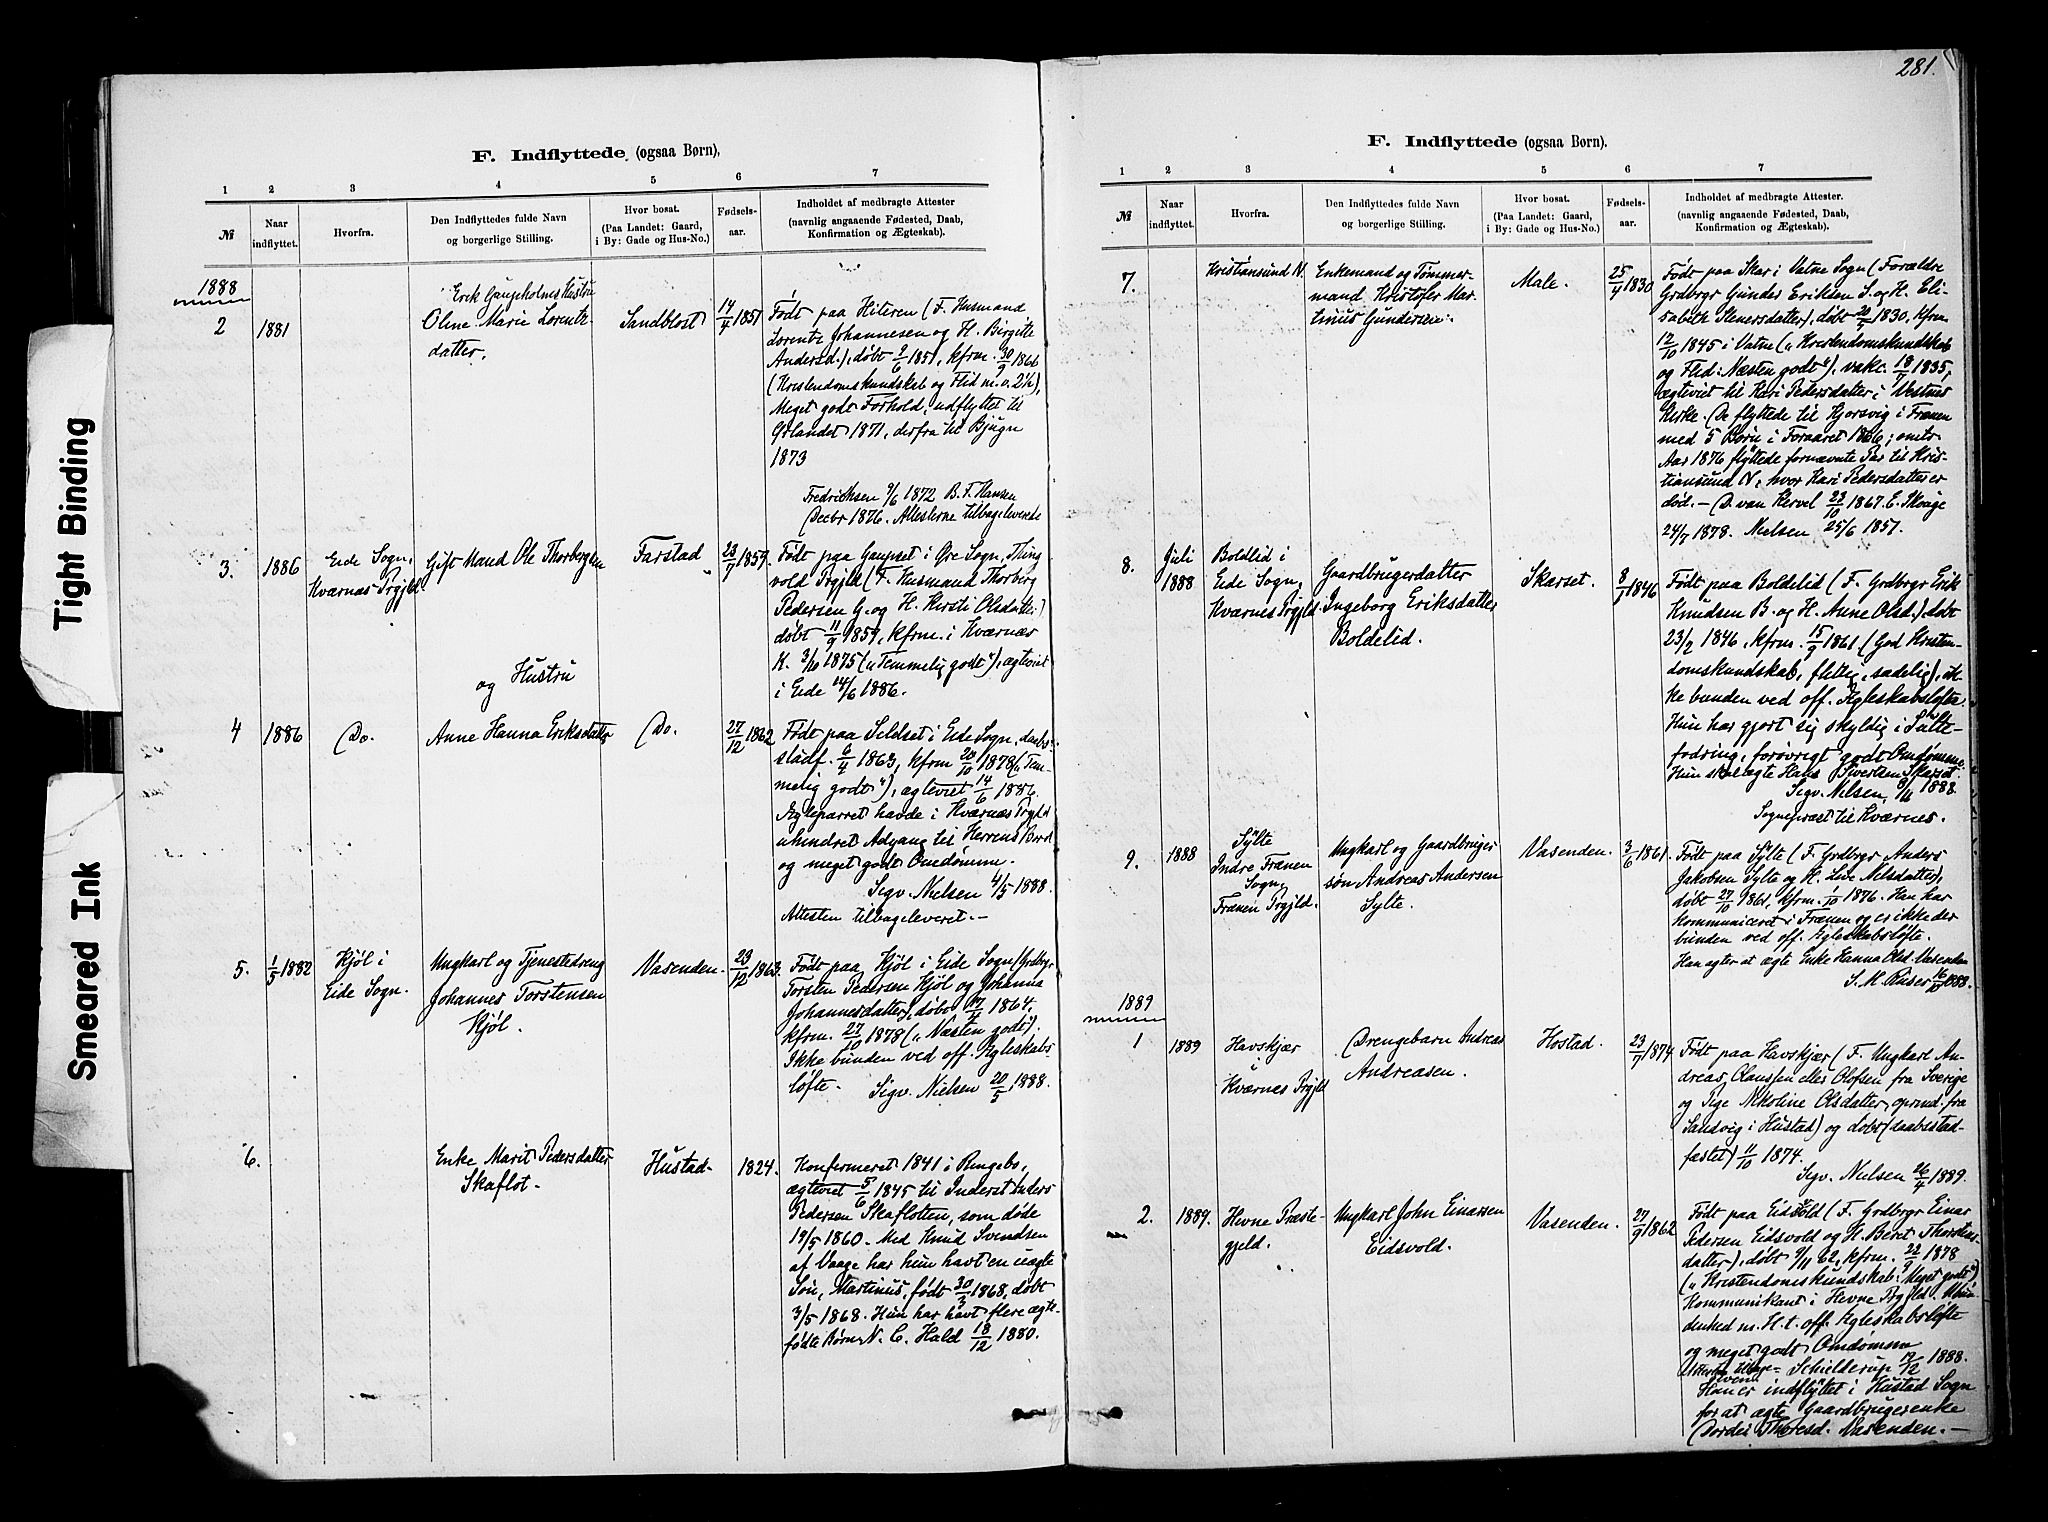 281.
Tight Binding
Smeared Ink
F. Indflyttede (ogsaa Børn),
1 2 3 4 5 6 7
№
Naar
indflyttet.
Hvorfra.
Den Indflyttedes fulde Navn
og borgerlige Stilling.
Hvor bosat.
(Paa Landet: Gaard,
i By: Gade og Hus-No.)
Fødsels-
aar.
Indholdet af medbragte Attester
(navnlig angaaende Fødested, Daab,
Konfirmation og Ægteskab).
1888
2
1881
Erik Gaupholms Hustru
Oline Marie Lorents-
datter.
Sandblost
14/4 1851
Født paa Hiteren (F. Husmand
Lorents Johannesen og H. Birgitte
Andersd.), døbt 9/6 1851, kfrm. 30/9 1866
(Kristendomskundskab og Flid m. v. 2½),
Meget godt Forhold, udflyttet til
Ørlandet 1871, derfra til Bjugn
1873
Fredrichsen 9/6 1872 B. F. Hansen
Decbr 1876. Attesterne tilbageleverede
3.
1886
Eide Sogn,
Kværnæs Prgjld.
Gift Mand Ole Thorbergsen
og Hustru
Farstad
23/7 1859.
Født paa Gaupset i Øre Sogn, Thing
vold Prgjld (F. Husmand Thorberg
Pedersen G. og H. Kirsti Olsdatter)
døbt 11/9 1859, kfrm. i Kværnæs
K. 3/10 1875 ("Temmelig godt"), ægteviet
i Eide 14/6 1886.
4
1886
Do.
Anne Hanna Eriksdatter
Do.
27/12 1862
Født paa Seldset i Eide Sogn, daabs-
stadf. 6/4 1863, kfrm 20/10 1878 ("Tem-
melig godt"), ægteviet 14/6 1886.
Ægteparret havde i Kværnæs Prgjld
uhindret Adgang til Herrens Bord
og meget godt Omdømme.
Sigv. Nielsen 4/5 1888.
Attesten tilbageleveret.—
5.
1/5 1882
Kjøl i
Eide Sogn.
Ungkarl og Tjenestedreng
Johannes Torstensen
Kjøl.
Vasenden.
23/12 1863.
Født paa Kjøl i Eide Sogn (Grdbgr
Torsten Pedersen Kjøl og Johanna
Johannesdatter), døbt 17/4 1864,
kfrm. 27/10 1878 ("Næsten godt");
Ikke bunden ved off. Ægteskabs
løfte. Sigv. Nielsen 20/5 1888.
6.
Enke Marit Pedersdatter
Skaflot.
Hustad.
1824.
Konfermeret 1841 i Ringebo,
ægteviet 5/6 1845 til Inderst Anders
Pedersen Skaflotten, som døde
19/5 1860. Med Knud Svendsen
af Vaage har hun havt en uægte
Søn, Martinus, født 30/3 1868, døbt
3/5 1868. Hun har havt flere ægte-
fødte Børn. N. C. Hald 18/12 1880.
F. Indflyttede (ogsaa Børn).
1 2 3 4 5 6 7
№
Naar
indflyttet.
Hvorfra.
Den Indflyttedes fulde Navn
og borgerlige Stilling.
Hvor bosat.
(Paa Landet: Gaard,
i By: Gade og Hus-No.)
Fødsels-
aar.
Indholdet af medbragte Attester
(navnlig angaaende Fødested, Daab,
Konfirmation og Ægteskab).
7.
Kristiansund N.
Enkemand og Tømmer-
mand Kristofer Mar-
tinus Gundersen.
Male.
25/4 1830
Født paa Skar i Vatne Sogn (Forældre
Grdbrgr Gunder Eriksen S. og H. Eli-
sabeth Stenersdatter), døbt 20/5 1830, kfrm
12/10 1845 i Vatne ("Kristendomskundskab
og Flid: Næsten godt"), vakc. 18/7 1835,
ægteviet til Kari Pedersdatter i Vestnes
Kirke. De flyttede til Hjorsvig i Frænen
med 5 Børn i Foraaret 1866; omtr.
Aar 1876 flyttede fornævnte Par til Kris-
tiansund N., hvor Kari Pedersdatter er
død.— D. van Kervel 23/10 1867. E. Skouge
24/7 1878. Nielsen 25/6 1857.
8.
Juli
1888
Boldlid i
Eide Sogn,
Kværnes Prgjld.
Gaardbrugerdatter
Ingeborg Eriksdatter
Boldelid.
Skarset.
8/1 1846
Født paa Boldelid (F. Grdbrgr Erik
Knudsen B. og H. Anne Olsd.), døbt
23/2 1846, kfrm. 15/9 1861 (God Kristen-
domskundskab, flittig, sædelig), ik-
ke bunden ved off. Ægteskabsløfte.
Hun har gjort sig skyldig i Sulte-
fodring, forøvrigt godt Omdømme.
Hun skal ægte Hans Sivertsen Skarset
Sigv. Nielsen, 1888.
Sogneprest til Kværnes.
9.
1888
Sylte
Indre Frænen
Sogn,
Frænen Prgjld.
Ungkarl og Gaardbruger
søn Andreas Andersen
Sylte.
Vasenden.
3/6 1861.
Født paa Sylte (F. Grdbrgr Anders
Jakobsen Sylte og H. Live Nilsdatter),
døbt 27/10 1861, kfrm. 1/10 1876. Han har
kommuniceret i Frænen og er ikke der
bunden ved off. Ægteskabsløfte.
Han agter at ægte Enke Hanna Olsd. Vasenden
S. M. Riiser 16/10 1888.
1889
1
1889
Havskjær
Kværnes Prgjld
Drengebarn Andreas
Andreasen.
Hostad.
23/7 1874
Født paa Havskjær (F. Ungkarl An-
dreas Olaussen eller Olofsen fra Sverige
og Pige Nikoline Olsdatter, oprind. fra
Sandvig i Hustad) og døbt (daabsstad-
fæstet) 11/10 1874.
Sigv. Nielsen 26/4 1889.
2.
1889.
Hevne Præste-
gjeld.
Ungkarl John Einarsen
Eidsvold.
Vasenden.
27/9 1862
Født paa Eidsvold (F. Grdbrgr Einar
Pedersen Eidsvold og H. Beret Thorstens-
datter), døbt 9/11 62, kfrm. 22/9 1878
("Kristendomskundskab: Meget godt")
Kommunikant i Hevne Prgjld.
denhed m. H. t. off. Ægteskabsløfte
og meget godt Omdømme
Schielderup 17/12 1888.
Han er indflyttet i Hustad Sogn
for at ægte Gaardbrugerenke
Dordei Thoresd. Vasenden.—